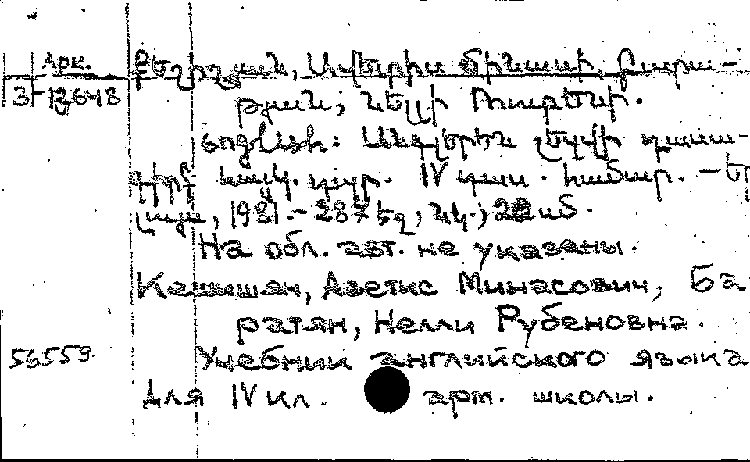 Арк.
3-13648
Քեշիշյան, Ավետիս Մինասի, Բարա-
թյան, Նելլի Ռուբենի.
English: Անգլերեն լեզվի դասա-
գիրք հայկ. դպր. IV դաս. համար. – Եր
լույս, 1981. – 287 էջ, նկ.; 22 սմ.
На обл. авт. не указаны.
Кешишян, Аветис Минасович, Ба
ратян, Нелли Рубеновна.
56559.
Учебник английского языка
для IV кл. арм. школы.